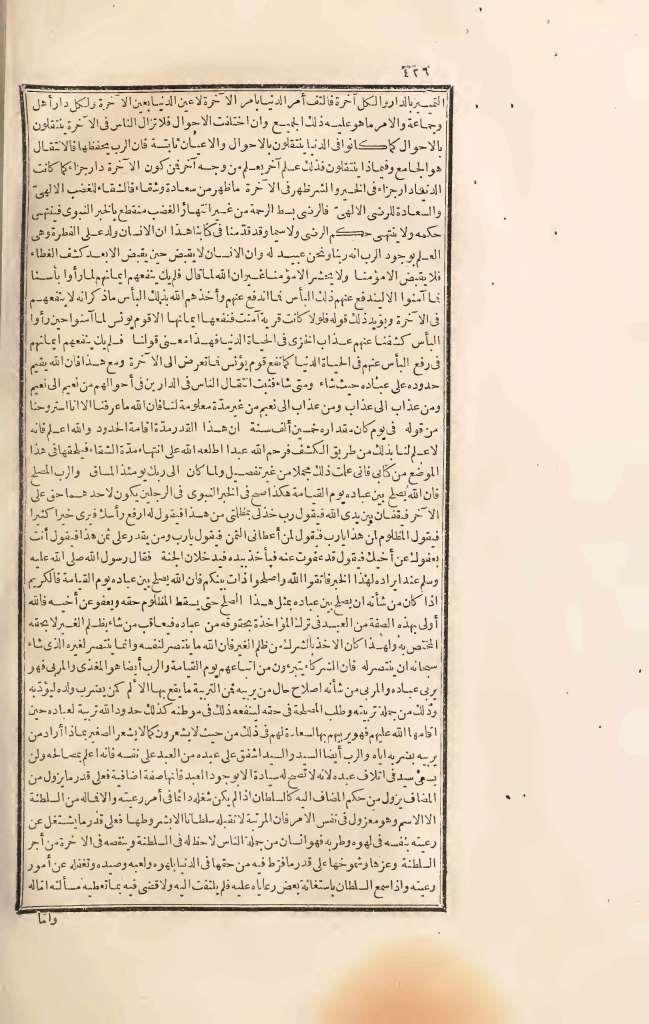 ٤٢٦
التمييز بالدار والكل آخرة فالتف أمر الدنيا بامر الآخرة لا عين الدنيا بعين الآخرة ولكل دار أهل
وجماعة والامر ما هو عليه ذلك الجميع وان اختلفت الاحوال فلا تزال الناس فى الآخرة ينتقلون
بالاحوال كما كانوا فى الدنيا ينتقلون بالاحوال والاعيان ثابتة فان الرب يحفظها فالانتقال
هو الجامع وفيماذا ينتقلون فذلك علم آخر يعلم من وجه آخر فمن كون الآخرة دار جزاء كما كانت
الدنيا دار جزاء فى الخير والشر ظهر فى الآخرة ما ظهر من سعادة وشقاء فالشقاء للغضب الالهىّ
والسعادة للرضى الالهىّ فالرضى بسط الرحمة من غير انتهاء والغضب منقطع بالخبر النبوى فينتهى
حكمه ولا ينتهى حكم الرضى ولا سيما وقد قدّمنا فى كتابنا هذا ان الانسان ولد على الفطرة وهى
العلم بوجود الرب انه ربنا ونحن عبيد له وان الانسان لا يقبض حين يقبض الا بعد كشف الغطاء
فلا يقبض الا مؤمنا ولا يحشر الا مؤمنا غير ان الله لما قال فلم يك ينفعهم ايمانهم لما رأوا بأسنا
فما آمنوا الا ليندفع عنهم ذلك البأس فما اندفع عنهم وأخذهم الله بذلك البأس وما ذكر انه لا ينفعهم
فى الآخرة ويؤيد ذلك قوله فلولا كانت قرية آمنت فنفعها ايمانها الا قوم يونس لما آمنوا حين رأوا
البأس كشفنا عنهم عذاب الخزى فى الحياة الدنيا فهذا معنى قولنا فلم يك ينفعهم ايمانهم
فى رفع البأس عنهم فى الحياة الدنيا كما نفع قوم يونس فما تعرض الى الآخرة ومع هذا فان الله يقيم
حدوده على عباده حيث شاء ومتى شاء فثبت انتقال الناس فى الدارين فى أحوالهم من نعيم الى نعيم
ومن عذاب الى عذاب ومن عذاب الى نعيم من غير مدة معلومة لنا فان الله ما عرفنا الا انا استروحنا
من قوله فى يوم كان مقداره خمسين ألف سنة ان هذا القدر مدة اقامة الحدود والله اعلم فانه
لا علم لنا بذلك من طريق الكشف فرحم الله عبدا اطلعه الله على انتهاء مدة الشقاء فيلحقها فى هذا
الموضع من كتابى فانى علمت ذلك مجملا من غير تفصيل ولما كان الى ربك يومئذ المساق والرب المصلح
فان الله يصلح بين عباده يوم القيامة هكذا صح فى الخبر النبوى فى الرجلين يكون لاحدهما حق على
الآخر فيقفان بين يدى الله فيقول رب خذ لى بمظلمتى من هذا فيقول له ارفع رأسك فيرى خيرا كثيرا
فيقول المظلوم لمن هذا يا رب فيقول لمن أعطانى الثمن فيقول يا رب ومن يقدر على ثمن هذا فيقول أنت
بعفوك عن أخيك فيقول قد عفوت عنه فيأخذ بيده فيدخلان الجنة فقال رسول الله صلى الله عليه
وسلم عند ايراده لهذا الخبر فاتقوا الله واصلحوا ذات بينكم فان الله يصلح بين عباده يوم القيامة فالكريم
اذا كان من شأنه ان يصلح بين عباده بمثل هذا الصلح حتى يسقط المظلوم حقه ويعفو عن أخيه فالله
أولى بهذه الصفة من العبد فى ترك المؤاخذة بحقوقه من عباده فيعاقب من شاء بظلم الغير لا بحقه
المختص به ولهذا كان الاخذ بالشرك من ظلم الغير فان الله ما ينتصر لنفسه وانما ينتصر لغيره الذى شاء
سبحانه ان ينتصر له فان الشركاء يتبرءون من اتباعهم يوم القيامة والرب أيضا هو المغذى والمربى فهو
يربى عباده والمربى من شأنه اصلاح حال من يربيه فمن التربية ما يقع بها الالم كمن يضرب ولده ليؤدّبه
وذلك من جملة تربيته وطلب المصلحة فى حقه لينفعه ذلك فى موطنه كذلك حدود الله تربية لعباده حين
اقامها الله عليهم فهو يربيهم بها لسعادة لهم فى ذلك من حيث لا يشعرون كما لا يشعر الصغير بماذا أراد من
يربيه بضربه اياه والرب أيضا السيد والسيد اشفق على عبده من العبد على نفسه فانه اعلم بمصالحه ولن
يسعى سيد فى اتلاف عبده لانه لا تصح له سيادة الا بوجود العبد فانها صفة اضافية فعلى قدر ما يزول من
المضاف يزول من حكم المضاف اليه كالسلطان اذا لم يكن شغله دائما فى أمر رعيته والا فماله من السلطنة
الا الاسم وهو معزول فى نفس الامر فان المرتبة لا تقبله سلطانا الا بشروطها فعلى قدر ما يشتغل عن
رعيته بنفسه فى لهوه وطربه فهو انسان من جملة الناس لا حظ له فى السلطنة وينقصه فى الآخرة من أجر
السلطنة وعزها وشموخها على قدر ما فرّط فيه من حقها فى الدنيا بلهوه ولعبه وصيده وتغفله عن أمور
رعيته واذا سمع السلطان باستغاثة بعض رعاياه عليه فلم يلتفت اليه ولا قضى فيه بما تعطيه مسألته اماله
واما